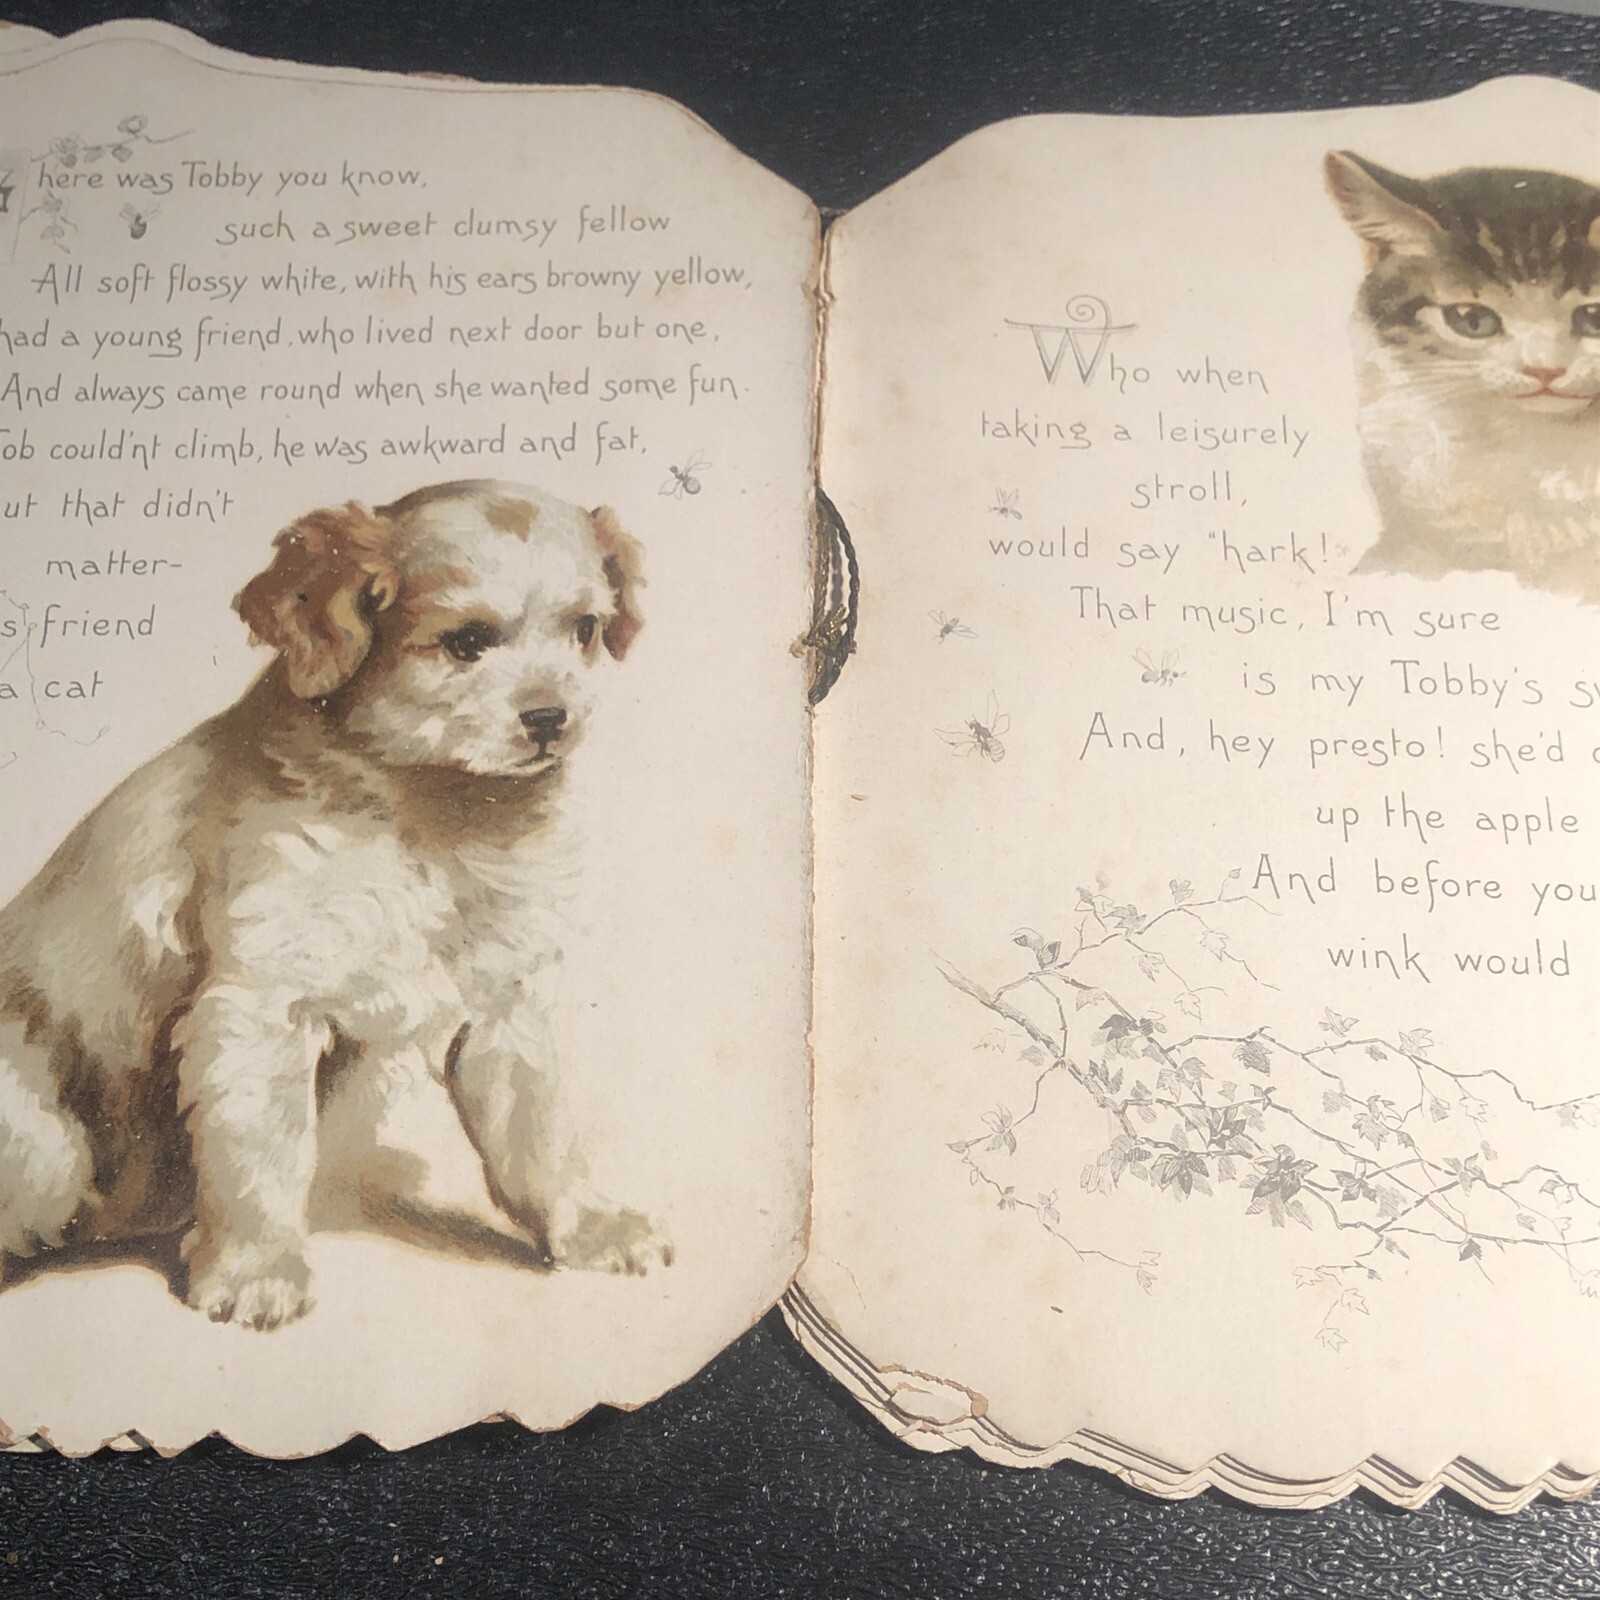 here was Tobby you know,
such a sweet clumsy fellow
All soft flossy white, with his ears browny yellow,
had a young friend, who lived next door but one,
And always came round when she wanted some fun.
ob could'nt climb, he was awkward and fat,
ut that didn't
matter-
s friend
a cat
Who when
taking a leisurely
stroll,
would say "hark!
That music, I'm sure
is my Tobby's
And, hey presto! she'd
up the apple
And before you
wink would